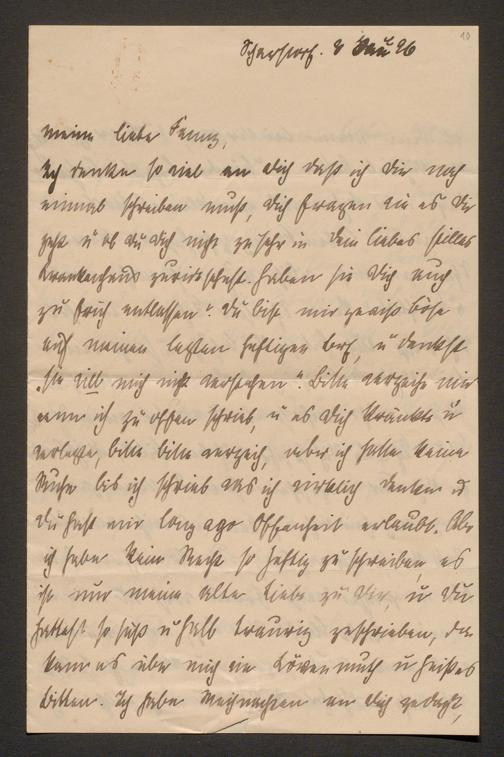 10
Scharstorf. 8 Jan 96
Meine liebe Fanny,
Ich denke so viel an Dich daß ich Dir noch
einmal schreiben muß, Dich fragen wie es Dir
geht u ob Du Dich nicht zu sehr in Dein liebes stilles
Krankenhaus zurücksehnst. Haben sie Dich auch
zu früh entlassen? Du bist mir gewiß böse
auf meinen letzten heftigen Brf, u denkst
„sie will mich nicht verstehen". Bitte verzeihe mir
wenn ich zu offen schrieb, u es Dich kränkte u
verletzte, bitte bitte verzeih, aber ich hatte keine
Ruhe bis ich schrieb was ich wirklich denke u
Du hast mir long ago Offenheit erlaubt. Aber
ich habe kein Recht so heftig zu schreiben, es
ist nur meine alte Liebe zu Dir, u Du
hattest so süß u halb traurig geschrieben, da
kam es über mich wie Löwenmuth u heißes
Bitten. Ich habe Weihnachten an Dich gedacht,